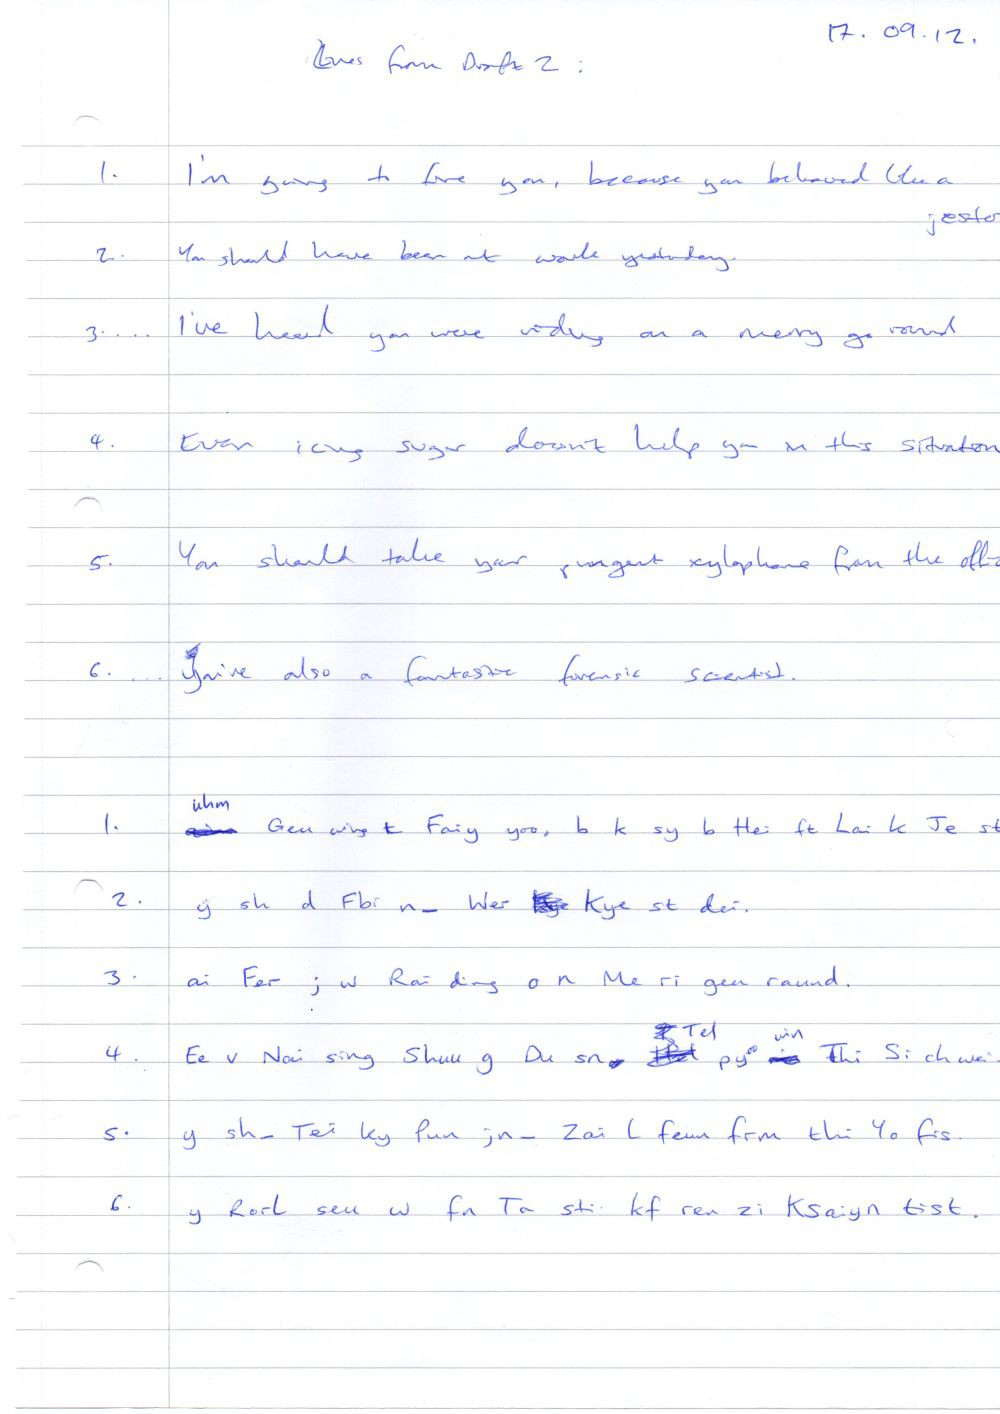 17. 09.12.
Lines from Draft 2 :
1. I'm going to fire you, because you behaved like a
jester
2. You should have been at work yesterday.
3. ... I've heard you were riding on a merry go round
4. Even icing sugar doesn't help you in this situation
5. You should take your pungent xylophone from the offi
6. ... You're also a fantastic forensic scientist.
uhm
1. Geu wing t Faiy yoo, b k sy b Hei ft Lai k Je st
2. y sh d Fbi n_ Wer Kye st dei.
3. ai Fer j w Rai ding o n Me ri geu raund.
Tel win
4. Ee v Nai sing Shuu g Du sn, py Thi Si chwei
5. y sh_ Tei ky Pun jn_ Zai l feun frm thi Yo fis.
6. y Rorl seu w fn Ta sti kf ren zi Ksaiyn tist.